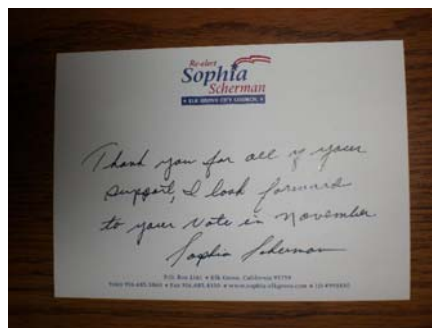 Re-elect
Sophia
Scherman
ELK GROVE CITY COUNCIL
Thank you for all of your
support, I look forward
to your vote in November
Sophia Scherman
P.O. Box • Elk Grove, California 95759
• Fax • www.sophia-elkgrove.com •